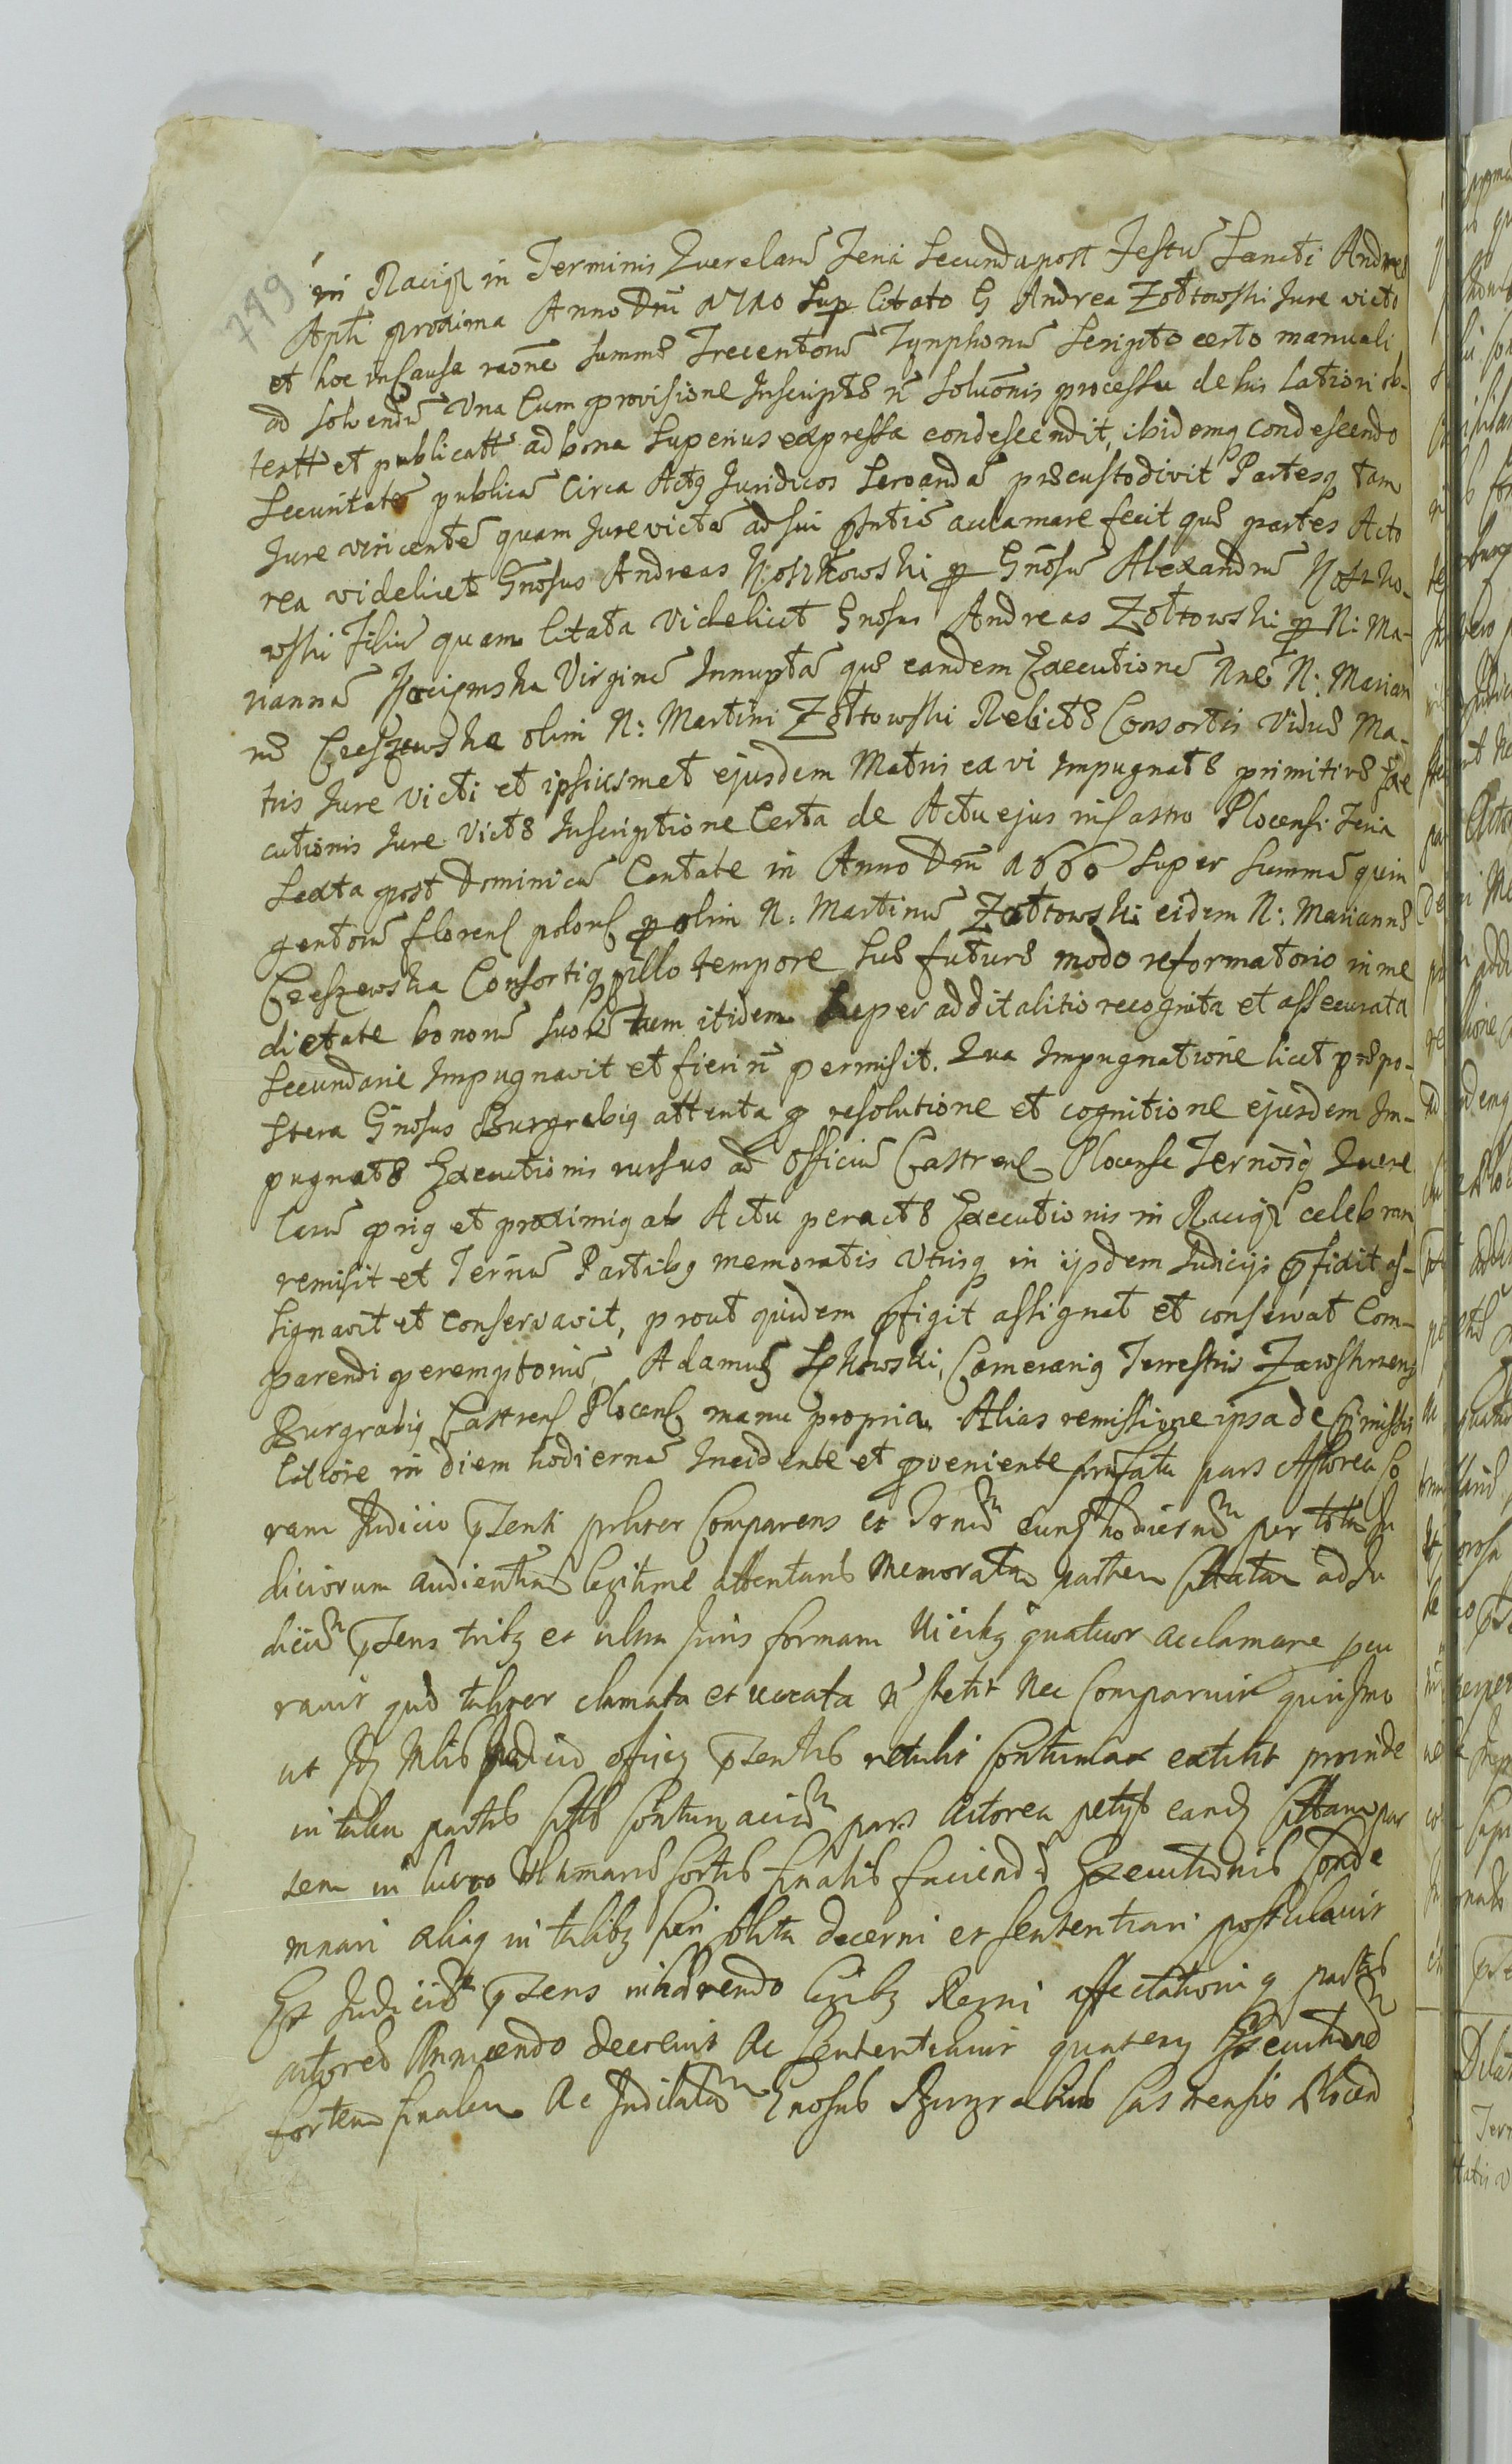 749
in Raciąż in Terminis Querelarū Feria Secunda post Festū Sancti Andreæ
Apti proxima Anno Dni 1710 sup Citato G Andrea Zołtowski Jure victo
et hoc in Causa raōne summæ Trecentorū Tynphonū Scripto certo manuali
ad solvendū Una Cum provisione Inscriptæ n̄ Soluōnis processu de his Latiori ob-
tentt et publicatt ad bona superius expressa condescendit, ibidemq condescendo
Securitatē publicā Circa Actq Juridicos servandā præcustodivit Partesq tam
Jure vincentē quam Jure victā ad sui pntiā acclamare fecit quæ partes Acto
rea videlicet Gnosus Andreas Noszkowski p Gnosū Alexandrū Noszko-
wski Filiū quam Citata videlicet Gnosus Andreas Zołtowski p N: Ma-
riannā Virginē Innuptā quæ eandem Executionē nnē N: Marian
næ Czeszewska olim N: Martini Zołtowski Relictæ Consortis Viduæ Ma-
tris Jure victi et ipsiusmet ejusdem Matris ex vi Impugnatæ primitivæ Exe
cutionis Jure Victæ Inscriptione Certa de Actu ejus in Castro Plocensi Feria
Sexta post Dominicā Cantate in Anno Dni 1660 super summā quin
gentorū florenꝭ polonꝭ p olim N: Martinū Zołtowski eidem N: Mariannæ
Czeszewska Consortiq p illo tempore suæ futuræ modo reformatorio in me
dietate bonorū suorū tum itidem super additalitio recognita et assecurata
Secundarie Impugnavit et fieri n̄ permisit. Qua Impugnatione licet præpo-
stera Gnosus Burgrabiq attenta p resolutione et cognitione ejusdem Im-
pugnatæ Executionis rursus ad Officiū Castrenꝭ Plocense Ternosq Quere
larū priq et proximiq ab Actu peractæ Executionis in Raciąż celebran
remisit et Ternū Partibq memoratis Utrisq in ijsdem Judicijs pfixit as-
signavit et conservavit, prout quidem pfigit assignat et conservat Com-
parendi peremptoriū, Adamus Camerariq Terrestris Zawskrzenꝭ
Burgrabiq Castrenꝭ Plocenꝭ manu propria. Alias remissione ipsa de pmissis
latiore in diem hodiernā Incidente et pveniente præfata pars Actorea Co
ram Judicio psenti pliter Comparens et Ternū eunꝭ hodiernū per totā Ju
diciorum audientiā legitime attentans memoratam partem Cittatam ad Ju
diciū psens tribq et ultra Juris formam vicibq quatuor acclamare pcu
ravit quæ taliter clamata et vocata n̄ stetit nec Comparuit quin imo
ut Judicio officq psentis retulit Contumax extitit proinde
in talem partis Cttæ Contumaciā pars Actorea petyt eandꝭ Cttam par
tem in lucro Ultimariæ sortis finalis faciendæ Executionis Conde
mnari aliaq in talibq fieri solita decerni et sententiari postulavit
Et Judiciū psens inhærendo legibq Regni affectationiq partis
actoreæ Annuendo decrevit ac sententiavit quatenq Executionē
sortem finalem ac Gnosus Burgrabius Castrensis Plocen